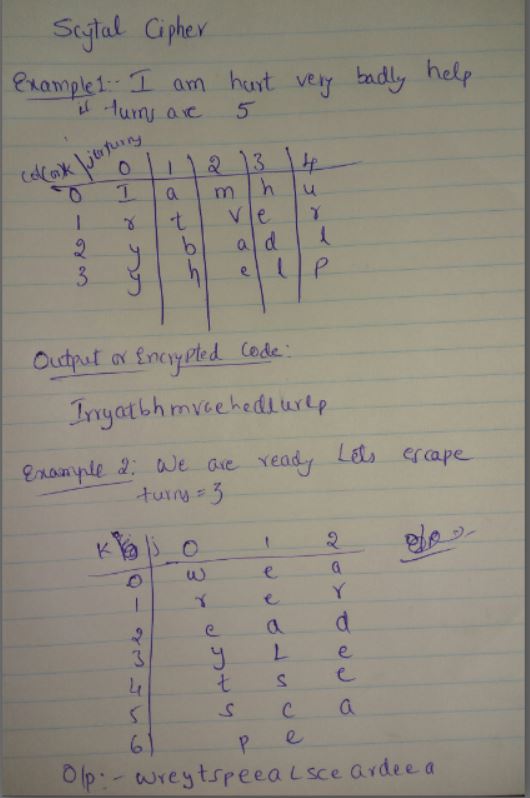 Scytal Cipher
Example1:- I am hurt very badly help
if turns are 5
j for turns
0 1 2 3 4
0 I a m h u
1 r t v e r
2 y b a d l
3 y h e l p
Output or Encrypted Code:
Irryatbhmvaehedlurlp
Example 2: We are ready Lets escape
turns = 3
K j 0 1 2
0 w e a
1 r e r
2 e a d
3 y L e
4 t s e
5 s c a
6 p e
O/p:- wreytspeea L sce ardee a